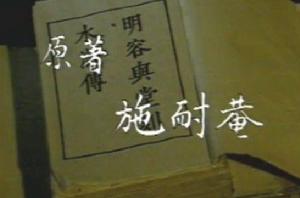 明容與堂刻
水滸傳
原著
施耐菴